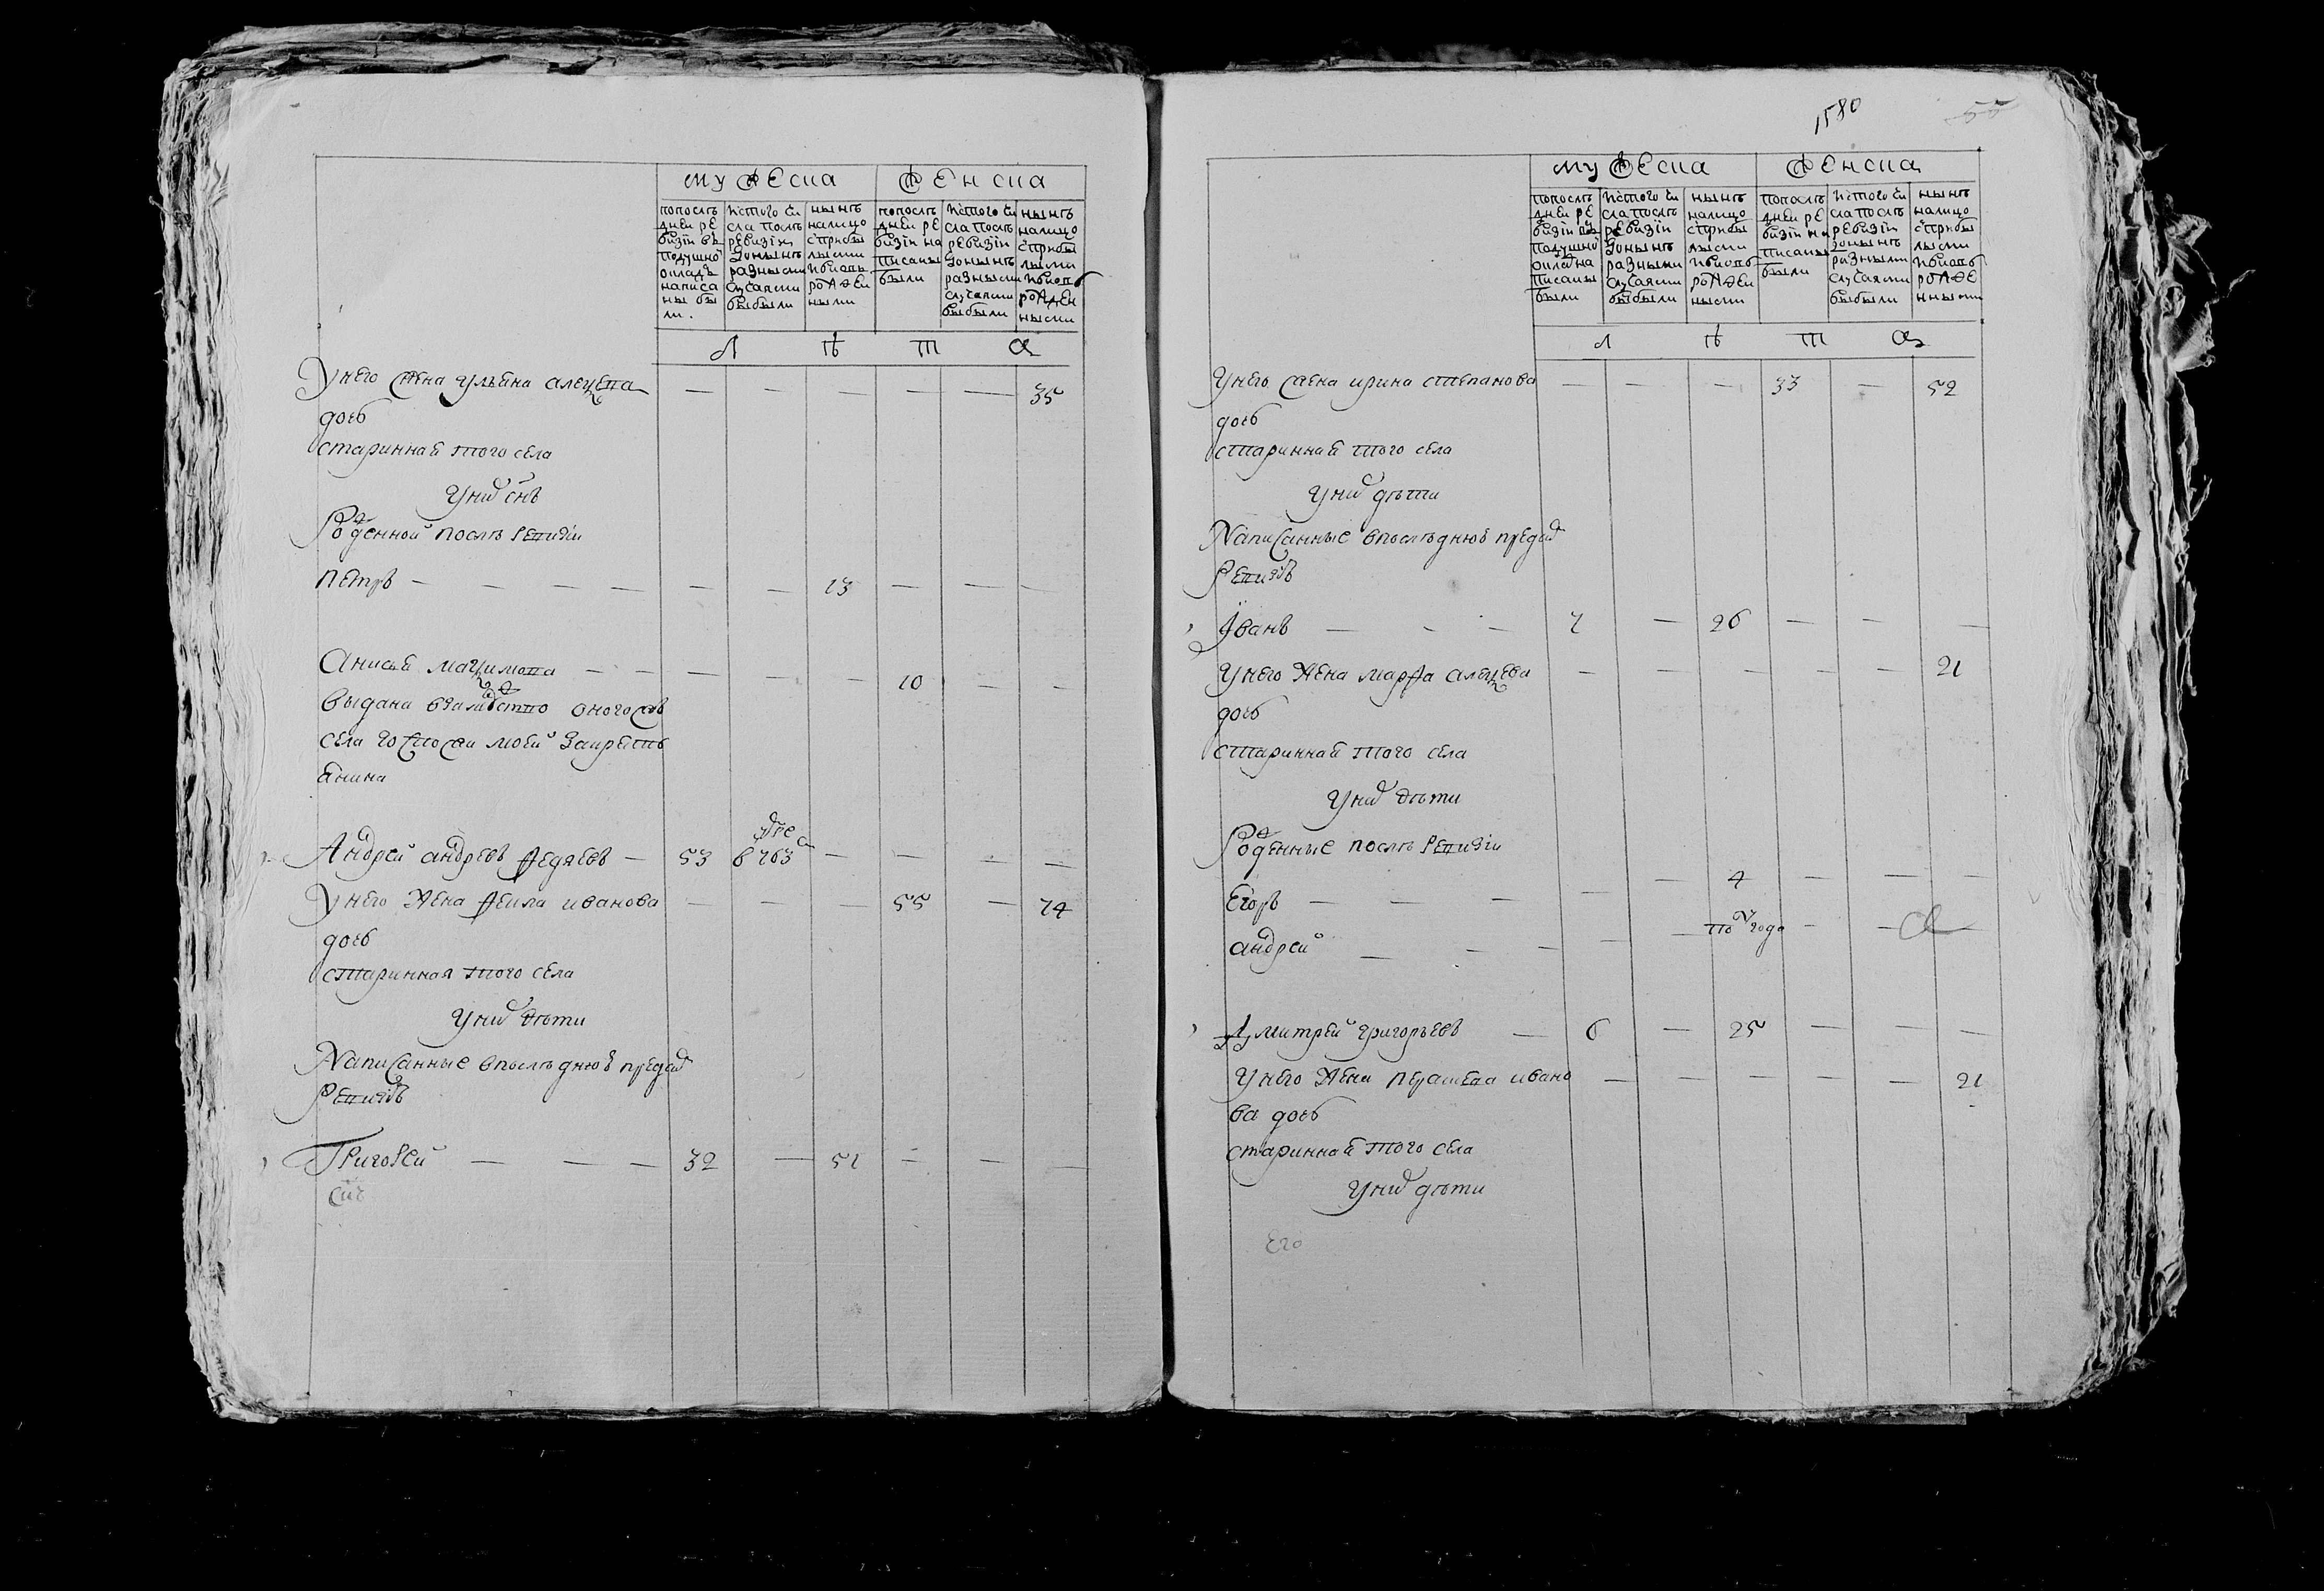 мужеска
женска
попослѣ
дней ре
визіи въ
подушной
окладъ
написа
ны бы
ли.
изтого чи
сла послѣ
ревизіи
донынѣ
разными
случаями
выбыли
нынѣ
налицо
сприбы
лыми
ивновь
рожден
ными
попослѣ
дней ре
визіи на
писаны
были
изтого чи
сла послѣ
ревизіи
донынѣ
разными
случаями
выбыли
нынѣ
налицо
сприбы
лыми
ивновь
рожден
ными
л ѣ т а
унего жена ульена алеѯева — — — — — 35
дочь
стариннаѣ того села
уних снъ
Рожденной послѣ Ревизіи
петръ — — — — — — 13 — — —
анисьѣ маѯимова — — — — — 10 — —
выдана взамужство оного жъ
села
анина
Андрей андреевъ Федяевъ — 53 в 763 — — — —
унего жена Фекла иванова — — — 55 — 74
дочь
старинная того села
уних дѣти
Написанные впослѣднюѣ пред
Ревизію
Григорей — — — 32 — 51 — — —
1580
55
мужеска
женска
попослѣ
дней ре
визіи въ
подушной
оклад на
писаны
были
изтого чи
сла послѣ
ревизіи
донынѣ
разными
случаями
выбыли
нынѣ
налицо
сприбы
лыми
ивновь
рожден
ными
попослѣ
дней ре
визіи на
писаны
были
изтого чи
сла послѣ
ревизіи
донынѣ
разными
случаями
выбыли
нынѣ
налицо
сприбы
лыми
ивновь
рожде
нными
л ѣ т а
унего жена ирина степанова — — — 33 — 52
дочь
стариннаѣ того села
уних дѣти
Написанные впослѣднюѣ пред
Ревизію
Иванъ — — — 7 — 26 — — —
унего жена марфа алеѯева — — — — — 21
дочь
стариннаѣ того села
уних дѣти
Рожденные послѣ Ревизіи
Егоръ — — — — — 4 — — —
андрей — — — — — пол года — — —
Дмитрей григорьевъ — 6 — 25 — — —
унего жена перасковья ивано — — — — — 21
ва дочь
стариннаѣ того села
уних дѣти
Его